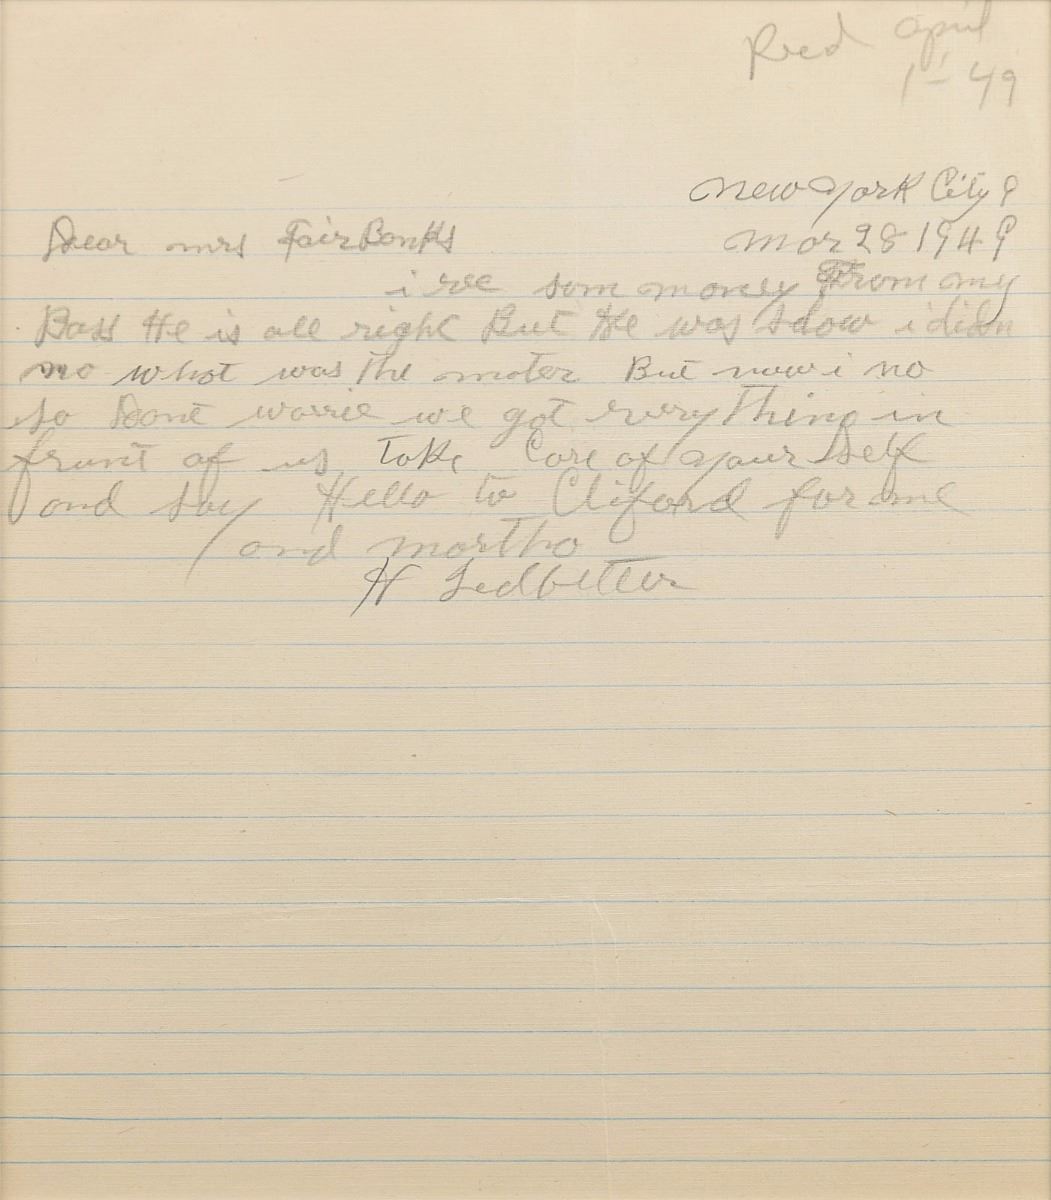 Recd april
1 - 49
New York City 9
Dear mrs FairBanks
Mar 28 1949
i rec som money From my
Boss He is all right But He was slow i didn
no what was the mater But now i no
so Dont worrie we got every Thing in
front of us Take Care of your Self
and say Hello to Cliford for me
and martha
H Ledbetter